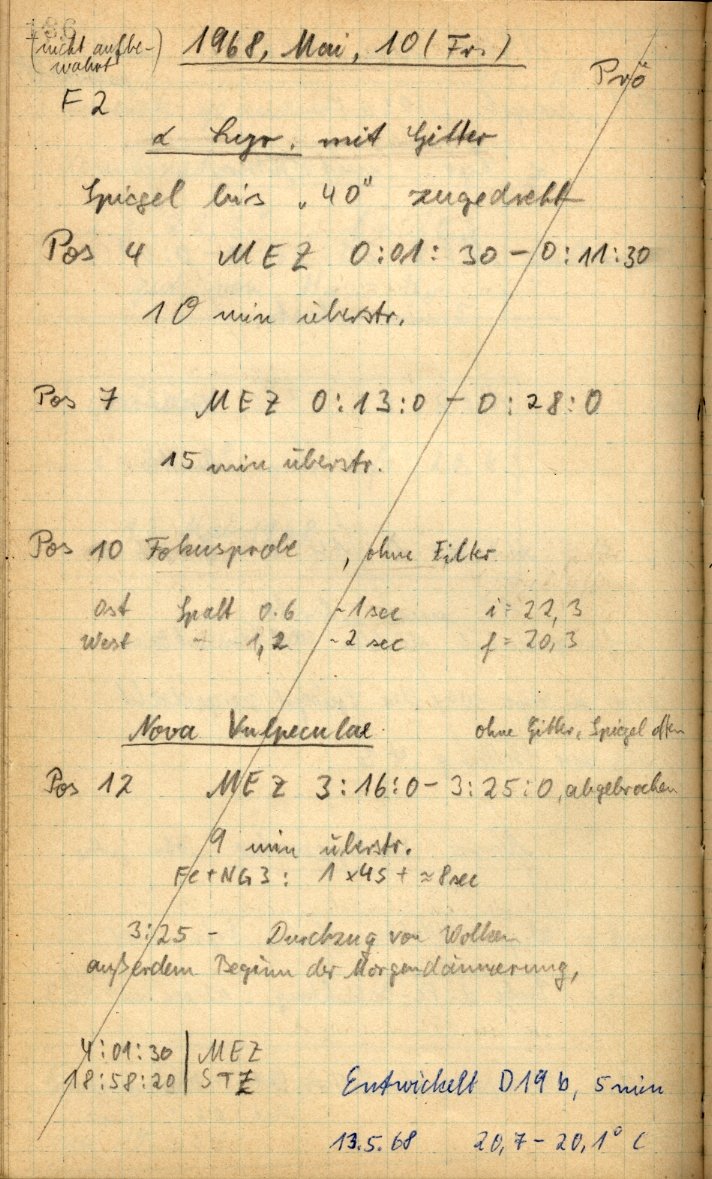 186
(nicht aufbe-
wahrt)
1968, Mai, 10 (Fr.)
Prö
F 2
α Lyr. mit Gitter
Spiegel bis „40" zugedreht
Pos 4 MEZ 0:01:30 – 0:11:30
10 min überstr.
Pos 7 MEZ 0:13:0 – 0:28:0
15 min überstr.
Pos 10 Fokusprobe, ohne Filter
Ost Spalt 0.6 ~1sec i = 22,3
West – " – 1,2 ~2 sec f = 20,3
Nova Vulpeculae ohne Gitter, Spiegel offen
Pos 12 MEZ 3:16:0 – 3:25:0, abgebrochen
9 min überstr.
Fe+NG3: 1 x 45 + ≈ 8sec
3:25 – Durchzug von Wolken
außerdem Beginn der Morgendämmerung,
4:01:30 | MEZ
18:58:20 | STZ
Entwickelt D19b, 5 min
13.5.68 20,7 – 20,1° C